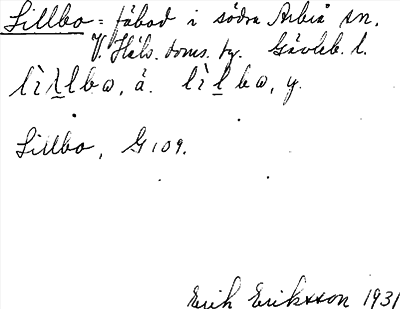 Lillbo = fäbod i södra Arbrå sn.
V. Häls. doms. tg. Gävleb. l.
lìl̲lbo, ä. lìl̲bo, y.
Lillbo, G 109.
Erik Eriksson 1931